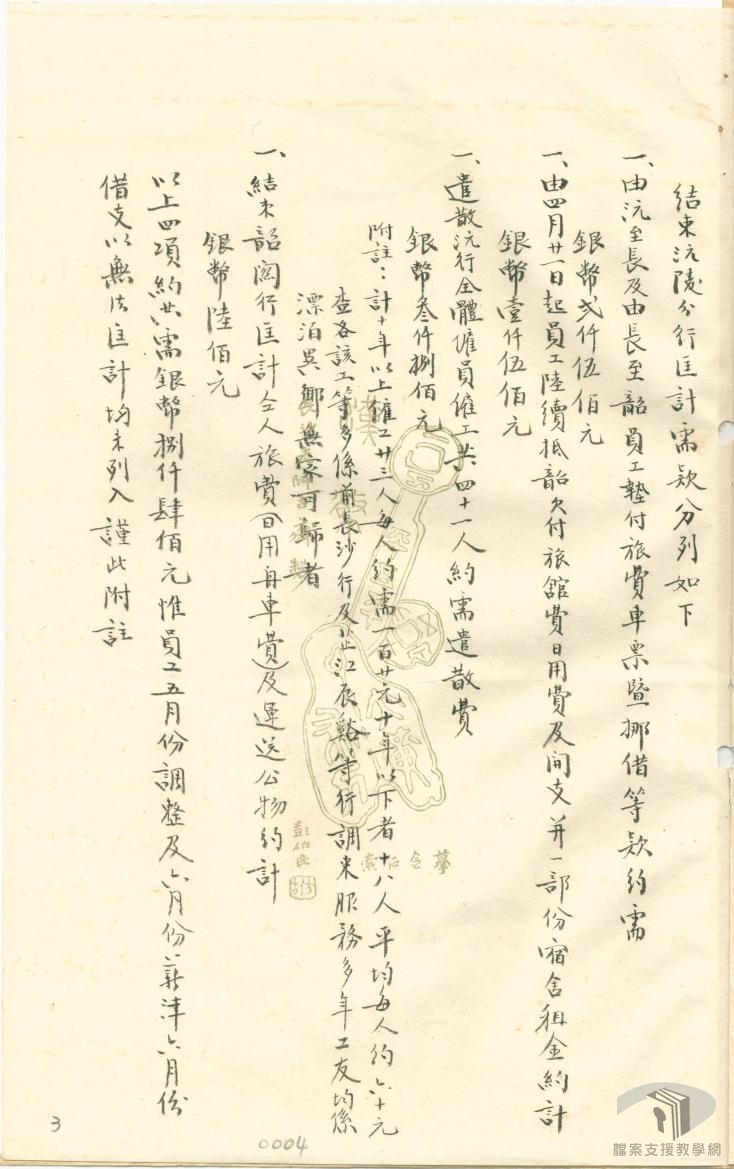 結束沅陵分行匡計需款分列如下
一、由沅至長及由長至韶員工墊付旅費車票暨挪借等款約需
銀幣弍仟伍佰元
一、由四月廿一日起員工陸續抵韶欠付旅舘費日用費及開支并一部份宿舍租金約計
銀幣壹仟伍佰元
一、遣散沅行全體僱員僱工共四十一人約需遣散費
銀幣叁仟捌佰元
附註：計十年以上僱工廿三人每人約需一百廿元十年以下者十八人平均每人約六十元
查各該工等多係前長沙行及芷江辰谿等行調來服務多年工友均係
漂泊異鄉無家可歸者
一、結束韶關行匡計仝人旅費(日用舟車費)及運送公物約計
銀幣陸佰元
以上四項約共需銀幣捌仟肆佰元惟員工五月份調整及六月份薪津六月份
借支以無法匡計均未列入謹此附註
3
0004
檔案支援教學網